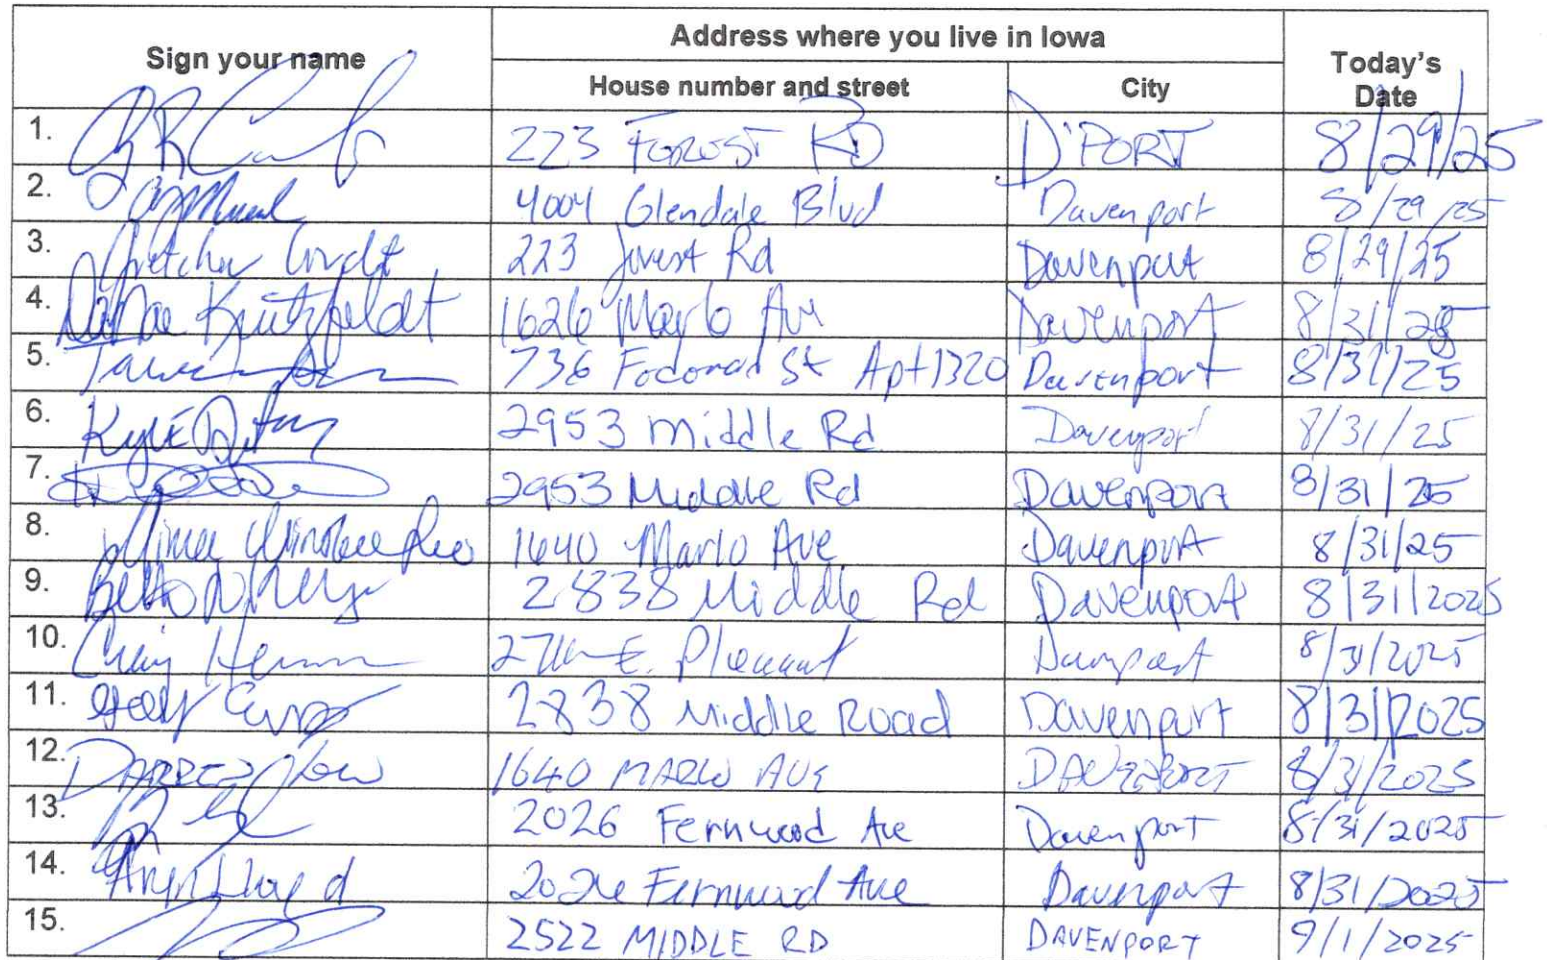 Sign your name
Address where you live in Iowa
House number and street
City
Today's Date
1. 223 FOREST RD D'PORT 8/29/25
2. 4004 Glendale Blvd Davenport 8/29/25
3. Gretchen 223 Forest Rd Davenport 8/29/25
4. 1626 Marlo Ave Davenport 8/31/25
5. 736 Federal St Apt 1320 Davenport 8/31/25
6. Kyle 2953 Middle Rd Davenport 8/31/25
7. 2953 Middle Rd Davenport 8/31/25
8. 1640 Marlo Ave Davenport 8/31/25
9. 2838 Middle Rd Davenport 8/31/2025
10. Craig E. Pleasant Davenport 8/31/2025
11. 2838 Middle Road Davenport 8/31/2025
12. DARREN 1640 MARLO AVE DAVENPORT 8/31/2025
13. 2026 Fernwood Ave Davenport 8/31/2025
14. Lloyd 2026 Fernwood Ave Davenport 8/31/2025
15. 2522 MIDDLE RD DAVENPORT 9/1/2025